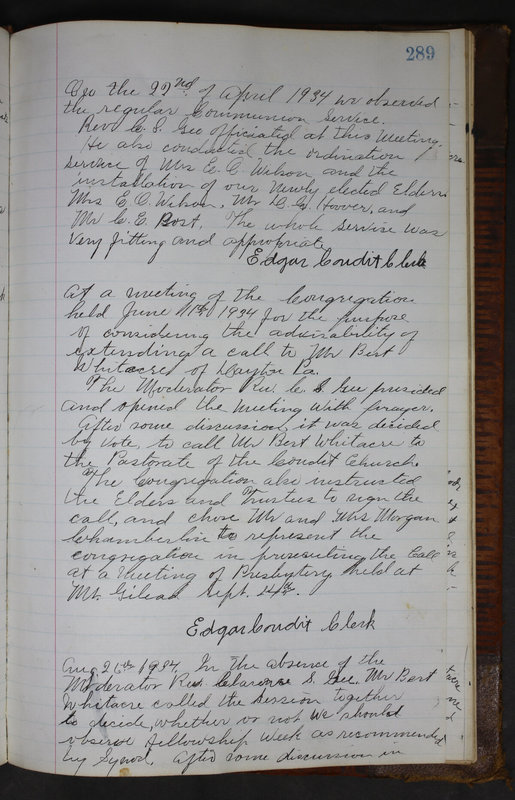 289
On the 22nd of April 1934 we observed
the regular Communion Service.
Rev. C. S. Gee officiated at this Meeting.
He also conducted the ordination
service of Mrs E. C. Wilson and the
installation of our newly elected Elders
Mrs E. C. Wilson, Mr C. W. Hoover, and
Mr C. E. Bost. The whole service was
very fitting and appropriate.
Edgar Condit Clerk
At a meeting of the Congregation
held June 11th 1934 for the purpose
of considering the advisability of
extending a call to Mr Bert
Whitacre of Dayton Pa.
The Moderator Rev. C. S. Gee presided
and opened the Meeting with prayer.
After some discussion, it was decided
by vote, to call Mr Bert Whitacre to
the Pastorate of the Condit Church.
The Congregation also instructed
the Elders and Trustees to sign the
call, and chose Mr and Mrs Morgan
Chamberlin to represent the
congregation in prosecuting the Call
at a Meeting of Presbytery held at
Mt. Gilead Sept. 24th.
Edgar Condit Clerk
Aug 26th 1934. In the absence of the
Moderator Rev. Clarence S. Gee. Mr Bert
Whitacre called the Session together
to decide, whether or not we should
observe fellowship week as recommended
by Synod, After some discussion in